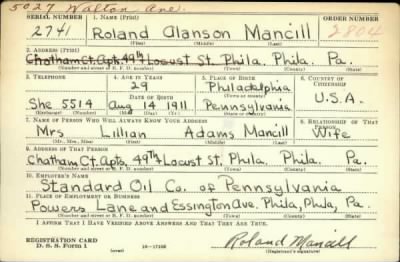 5027 Walton Ave.
SERIAL NUMBER 1. NAME (Print) ORDER NUMBER
2741 Roland Alanson Mancill 2804
(First) (Middle) (Last)
2. ADDRESS (Print)
Chatham Ct. Apts. 49th Locust St. Phila. Phila. Pa.
(Number and street or R. F. D. number) (Town) (County) (State)
3. TELEPHONE 4. AGE IN YEARS 5. PLACE OF BIRTH 6. COUNTRY OF CITIZENSHIP
29 Philadelphia
DATE OF BIRTH
She 5514 Aug 14 1911 Pennsylvania U.S.A.
(Exchange) (Number) (Mo.) (Day) (Yr.) (State or country)
7. NAME OF PERSON WHO WILL ALWAYS KNOW YOUR ADDRESS 8. RELATIONSHIP OF THAT PERSON
Mrs Lillian Adams Mancill Wife
(Mr., Mrs., Miss) (First) (Middle) (Last)
9. ADDRESS OF THAT PERSON
Chatham Ct. Apts, 49th Locust St, Phila. Phila. Pa.
(Number and street or R. F. D. number) (Town) (County) (State)
10. EMPLOYER'S NAME
Standard Oil Co. of Pennsylvania
11. PLACE OF EMPLOYMENT OR BUSINESS
Powers Lane and Essington Ave. Phila, Phila, Pa.
(Number and street or R. F. D. number) (Town) (County) (State)
I AFFIRM THAT I HAVE VERIFIED ABOVE ANSWERS AND THAT THEY ARE TRUE.
REGISTRATION CARD
D. S. S. Form 1 16—17105 Roland Mancill
(Registrant's signature)